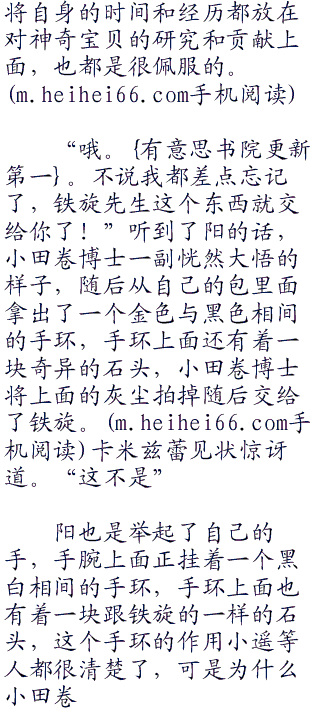 将自身的时间和经历都放在
对神奇宝贝的研究和贡献上
面，也都是很佩服的。
(m.heihei66.com手机阅读)
“哦。{有意思书院更新
第一}。不说我都差点忘记
了，铁旋先生这个东西就交
给你了！”听到了阳的话，
小田卷博士一副恍然大悟的
样子，随后从自己的包里面
拿出了一个金色与黑色相间
的手环，手环上面还有着一
块奇异的石头，小田卷博士
将上面的灰尘拍掉随后交给
了铁旋。(m.heihei66.com手
机阅读)卡米兹蕾见状惊讶
道。“这不是”
阳也是举起了自己的
手，手腕上面正挂着一个黑
白相间的手环，手环上面也
有着一块跟铁旋的一样的石
头，这个手环的作用小遥等
人都很清楚了，可是为什么
小田卷